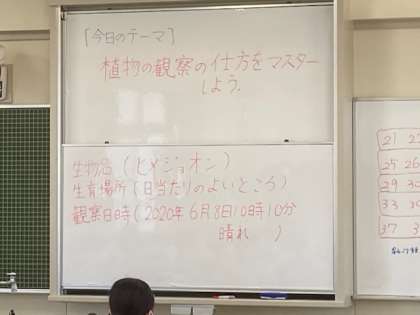 [今日のテーマ]
植物の観察の仕方をマスター
しよう.
生物名(ヒメジョオン)
生育場所(日当たりのよいところ)
観察日時(2020年6月8日10時10分
晴れ )
21 22
25 26
29 30
33
37